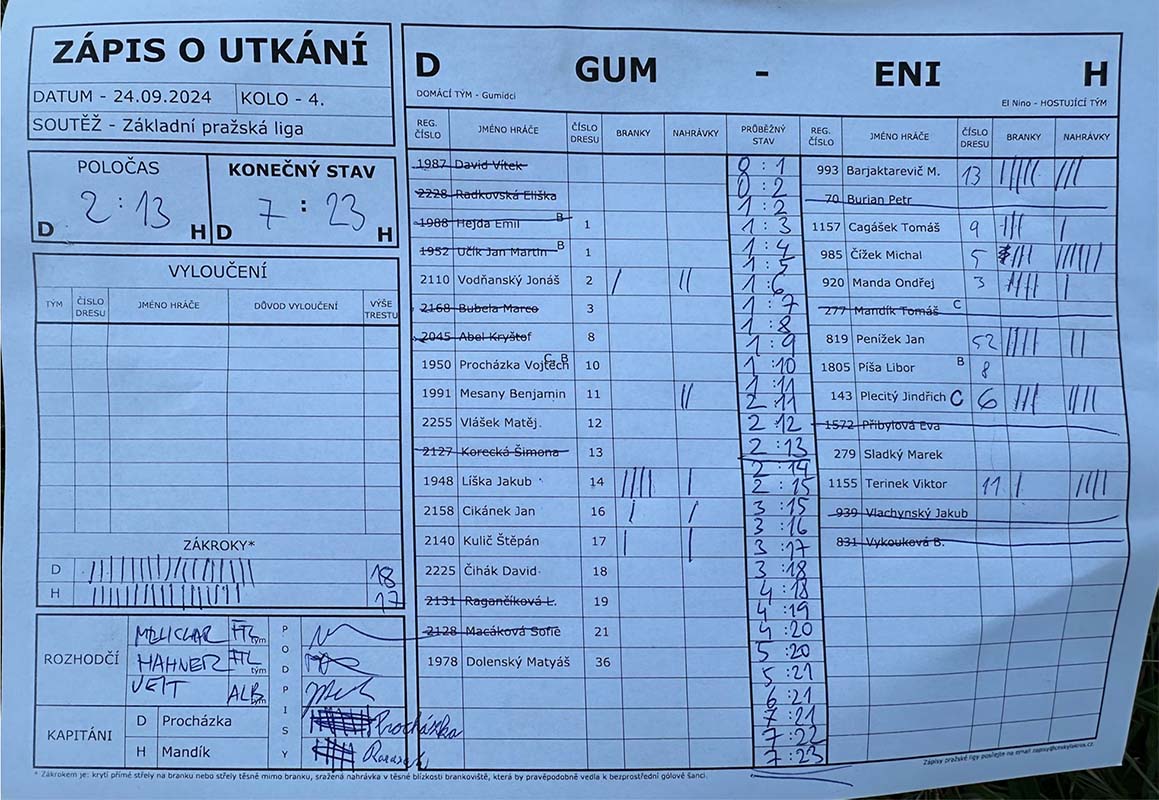 ZÁPIS O UTKÁNÍ
DATUM - 24.09.2024 KOLO - 4.
SOUTĚŽ - Základní pražská liga
POLOČAS
D 2 : 13 H
KONEČNÝ STAV
D 7 : 23 H
VYLOUČENÍ
TÝM ČÍSLO DRESU JMÉNO HRÁČE DŮVOD VYLOUČENÍ VÝŠE TRESTU
ZÁKROKY*
D 18
H 17
ROZHODČÍ
MELICHAR FTL tým
HAHNER FTL tým
VEIT ALB tým
PODPISY
KAPITÁNI
D Procházka Procházka
H Mandík
D GUM - ENI H
DOMÁCÍ TÝM - Gumídci El Nino - HOSTUJÍCÍ TÝM
REG. ČÍSLO JMÉNO HRÁČE ČÍSLO DRESU BRANKY NAHRÁVKY PRŮBĚŽNÝ STAV REG. ČÍSLO JMÉNO HRÁČE ČÍSLO DRESU BRANKY NAHRÁVKY
1987 David Vítek
2228 Radkovská Eliška
1988 Hejda Emil B 1
1952 Učík Jan Martin B 1
2110 Vodňanský Jonáš 2 | ||
2168 Bubela Marco 3
2045 Abel Kryštof 8
1950 Procházka Vojtěch C B 10
1991 Mesany Benjamin 11 ||
2255 Vlášek Matěj. 12
2127 Korecká Šimona 13
1948 Líška Jakub 14 |||| |
2158 Cikánek Jan 16 | |
2140 Kulič Štěpán 17 | |
2225 Čihák David 18
2131 Ragančíková L. 19
2128 Macáková Sofie 21
1978 Dolenský Matyáš 36
0 : 1
0 : 2
1 : 2
1 : 3
1 : 4
1 : 5
1 : 6
1 : 7
1 : 8
1 : 9
1 : 10
1 : 11
2 : 11
2 : 12
2 : 13
2 : 14
2 : 15
3 : 15
3 : 16
3 : 17
3 : 18
4 : 18
4 : 19
4 : 20
5 : 20
5 : 21
6 : 21
7 : 21
7 : 22
7 : 23
993 Barjaktarevič M. 13 ||||| |||
70 Burian Petr
1157 Cagášek Tomáš 9 ||| |
985 Čížek Michal 5 ||| ||||||
920 Manda Ondřej 3 |||| |
277 Mandík Tomáš C
819 Penížek Jan 52 |||| ||
1805 Píša Libor B 8
143 Plecitý Jindřich C 6 ||| ||||
1572 Přibylová Eva
279 Sladký Marek
1155 Terinek Viktor 11 | ||||
939 Vlachynský Jakub
831 Vykouková B.
Zápisy pražské ligy posílejte na email zapisy@ceskylakros.cz.
* Zákrokem je: krytí přímé střely na branku nebo střely těsně mimo branku, sražená nahrávka v těsné blízkosti brankoviště, která by pravěpodobně vedla k bezprostřední gólové šanci.